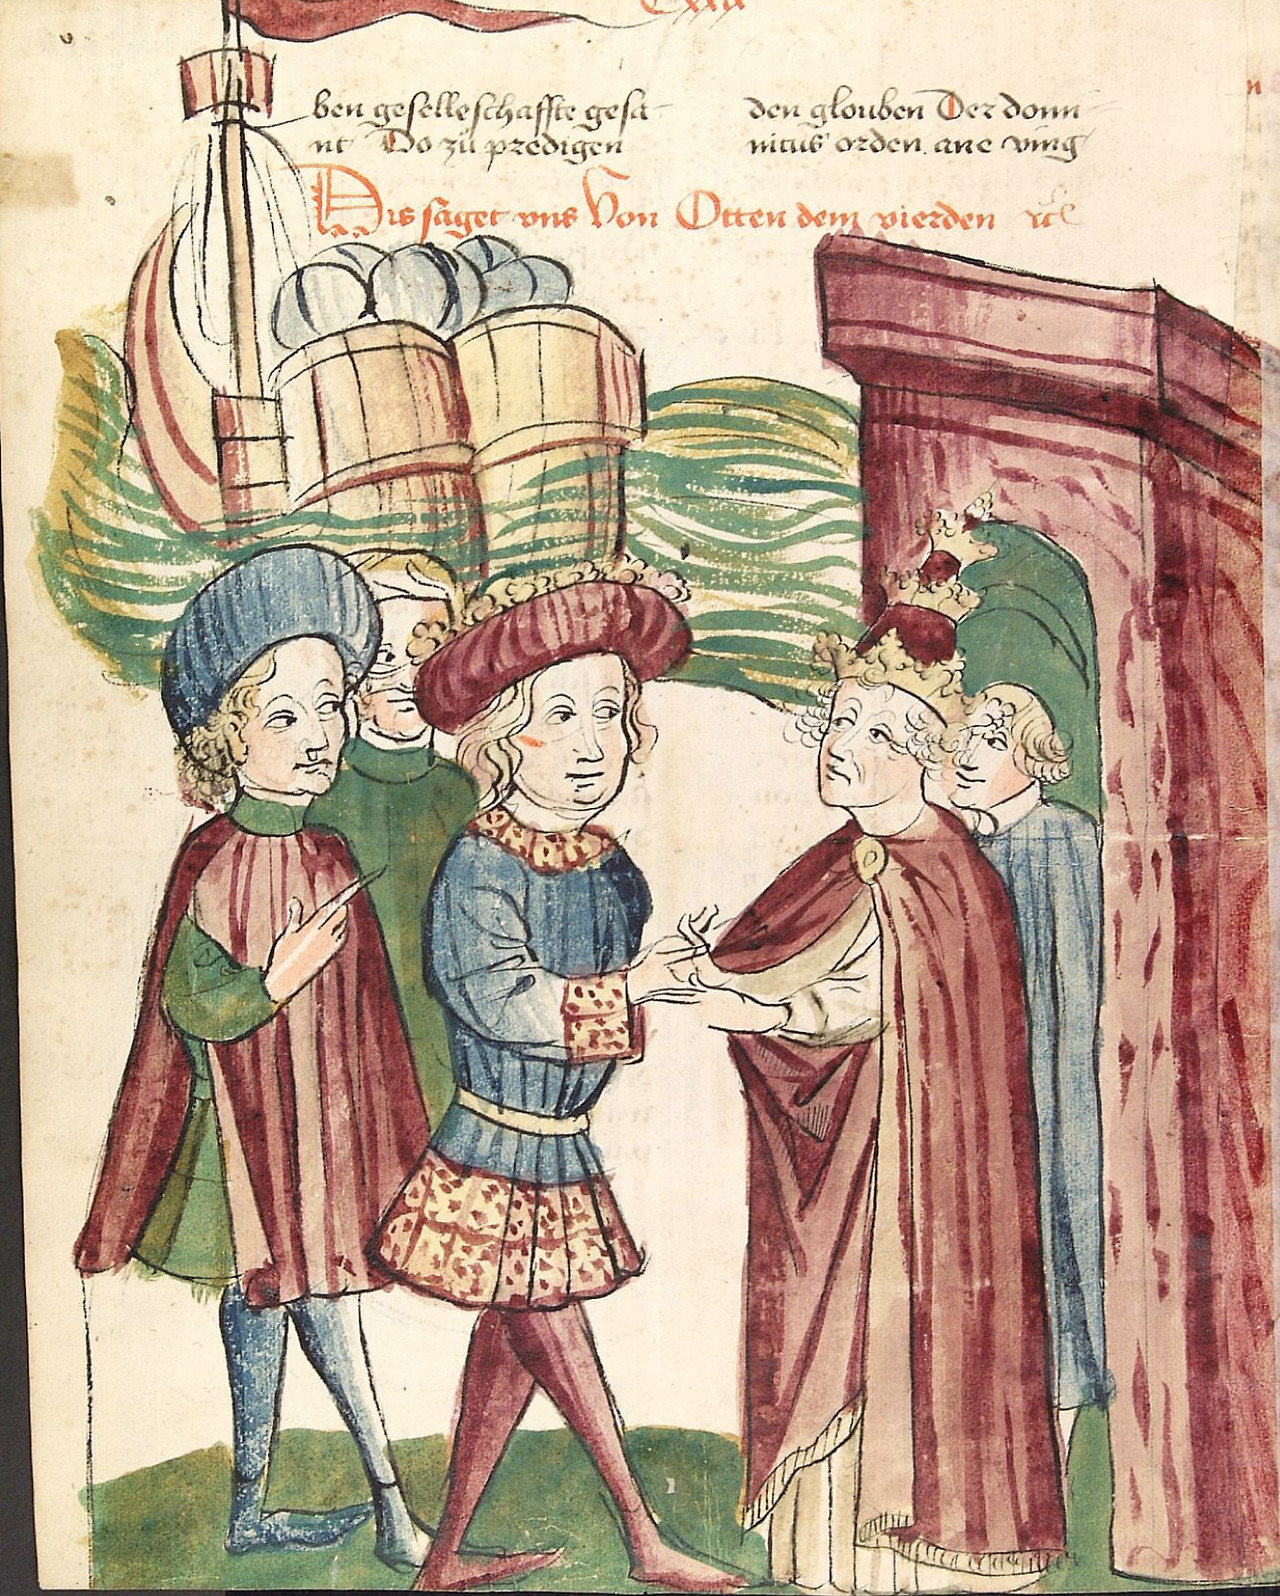 Cxxii
ben geselleschaffte gesa-
nt Do zü predigen
den glouben Der domi-
nicus orden ane ving
Dis saget vns von Otten dem vierden
n